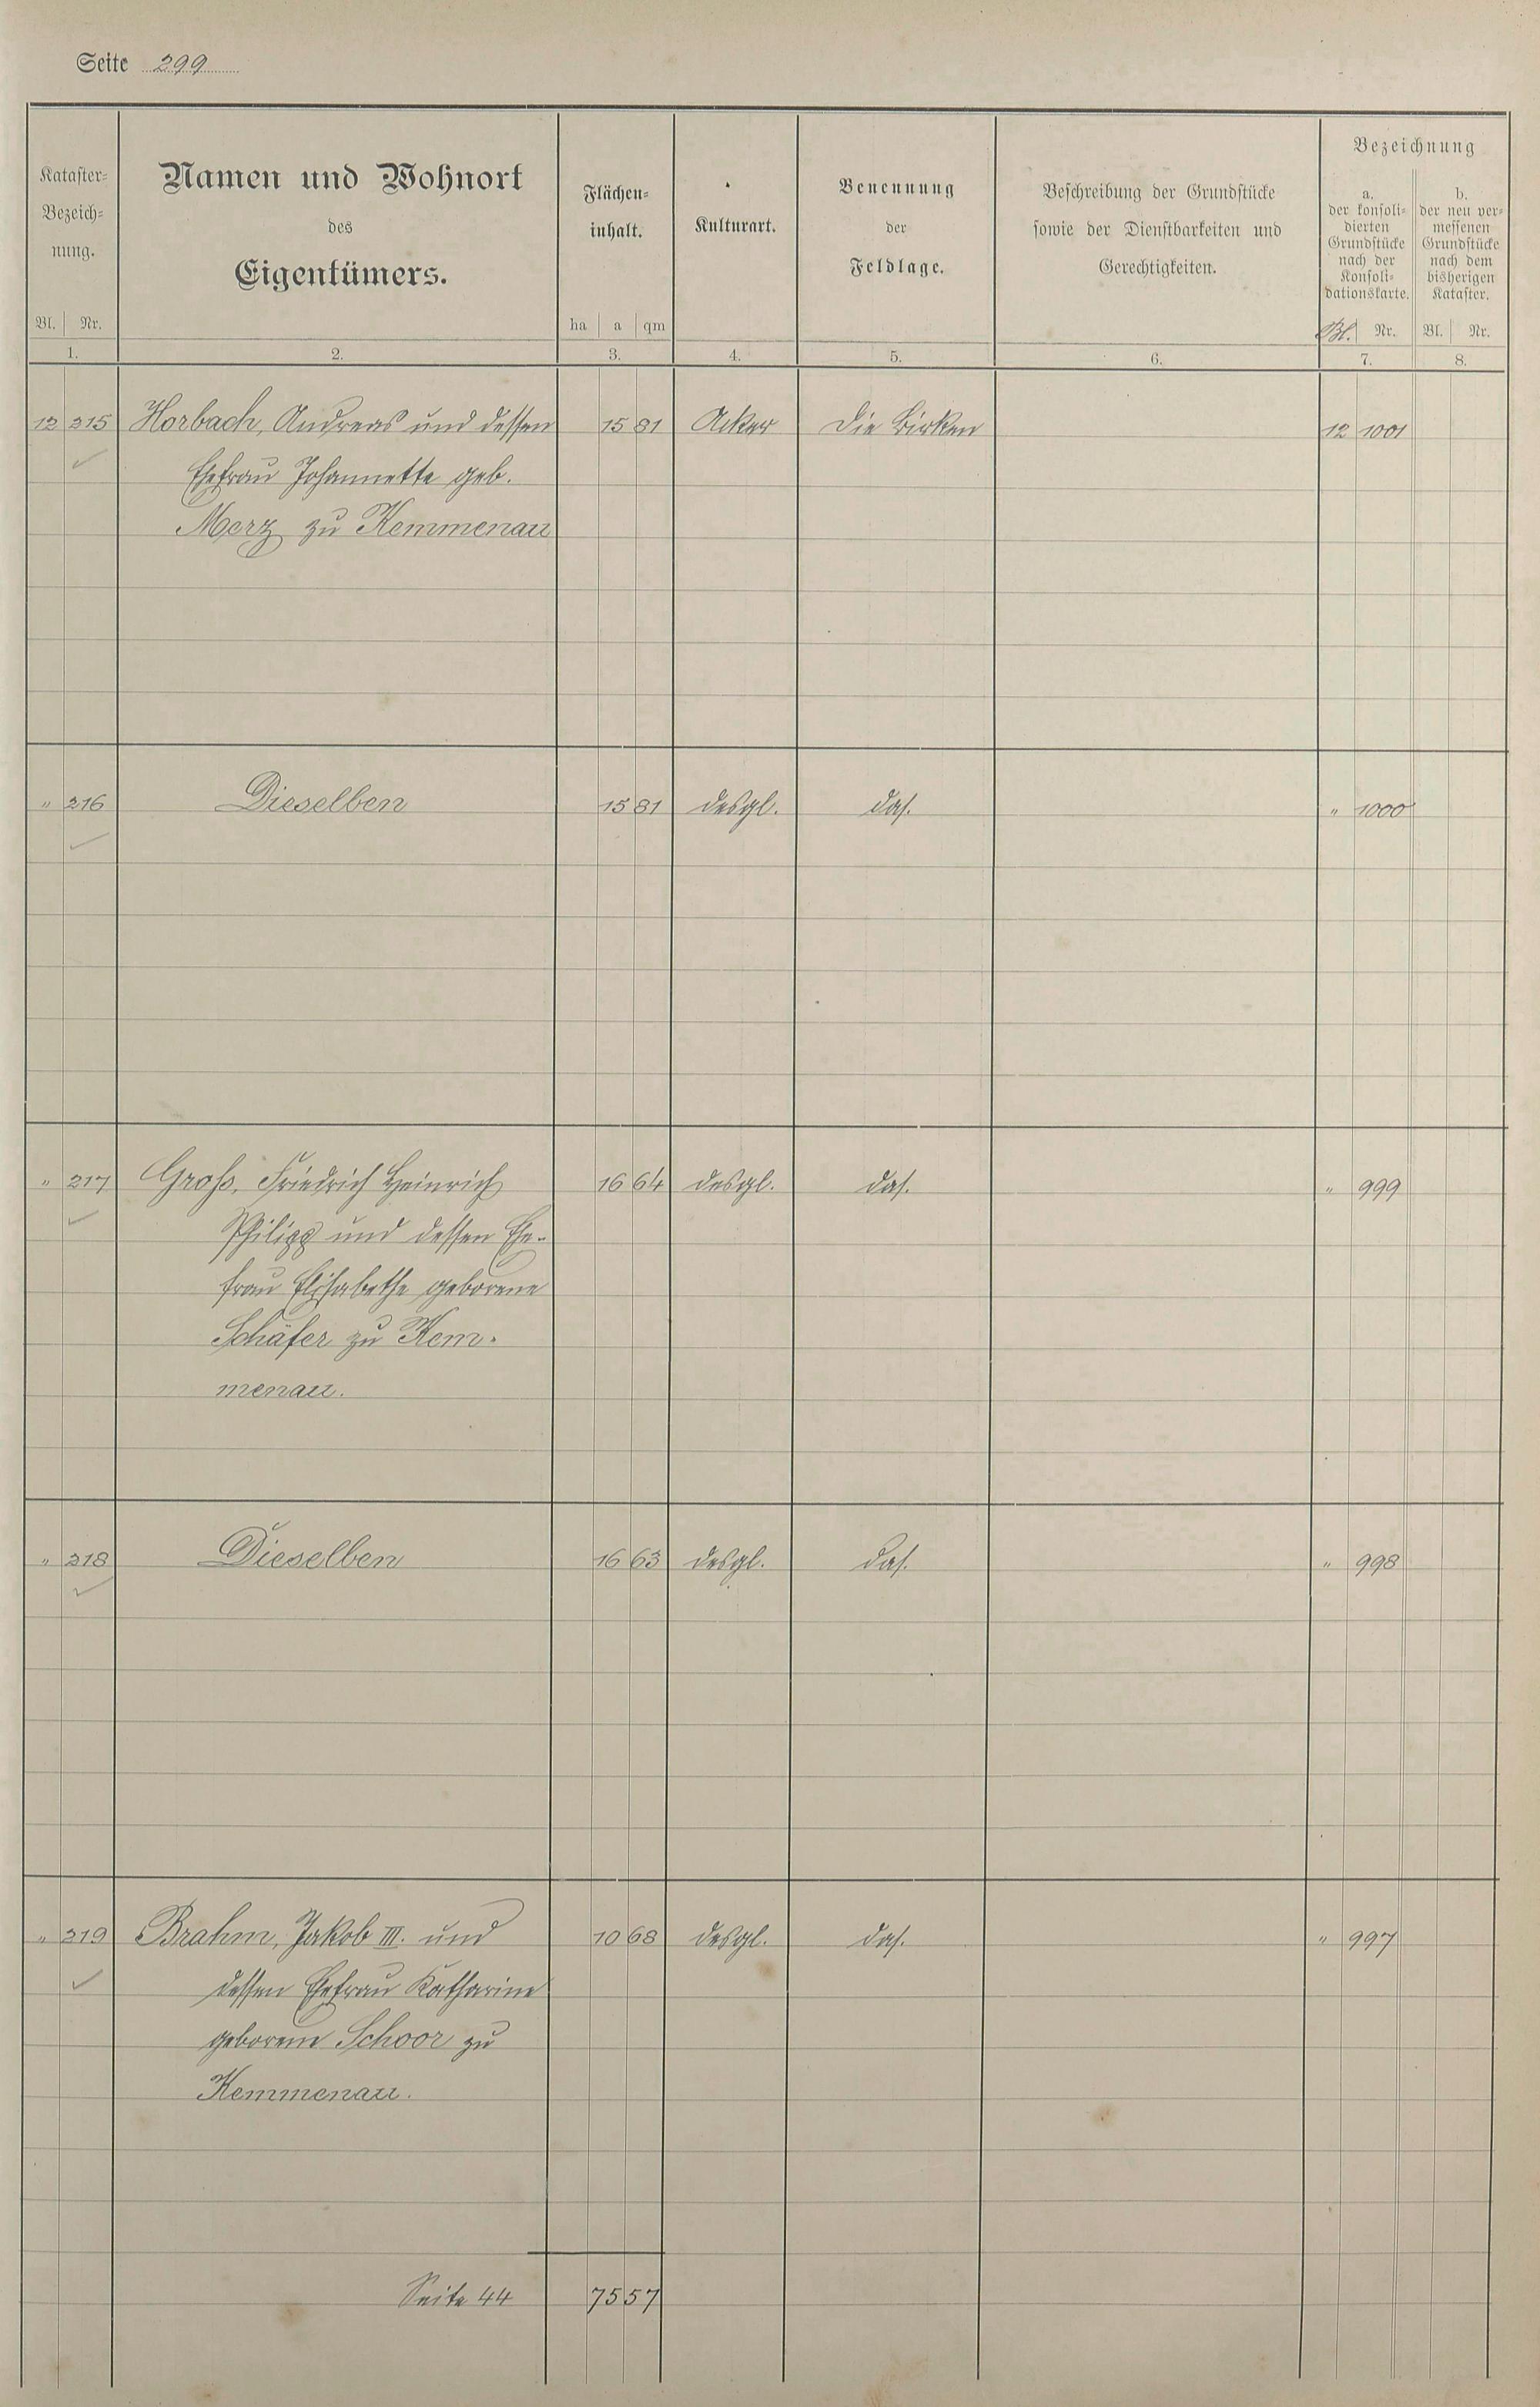 Seite 299
Kataster-
Bezeich-
nung.
Bl. Nr.
1.
Namen und Wohnort
des
Eigentümers.
2.
Flächen-
inhalt.
ha a qm
3.
Kulturart.
4.
Benennung
der
Feldlage.
5.
Beschreibung der Grundstücke
sowie der Dienstbarkeiten und
Gerechtigkeiten.
6.
Bezeichnung
a.
der konsoli-
dierten
Grundstücke
nach der
Konsoli-
dationskarte.
Bl. Nr.
7.
b.
der neu ver-
messenen
Grundstücke
nach dem
bisherigen
Kataster.
Bl. Nr.
8.
12 215 Horbach, Andreas und dessen 15 81 Acker Die Birken 12 1001
Ehefrau Johannette geb.
Merz zu Kemmenau
" 216 Dieselben 15 81 desgl. das. " 1000
" 217 Groß, Friedrich Heinrich 16 64 desgl. das. " 999
Philipp und dessen Ehe-
frau Elisabethe geborene
Schäfer zu Kem-
menau.
" 218 Dieselben 16 63 desgl. das. " 998
" 219 Brahm, Jakob III. und 10 68 desgl. das. " 997
dessen Ehefrau Katharine
geborene Schoor zu
Kemmenau.
Seite 44 75 57